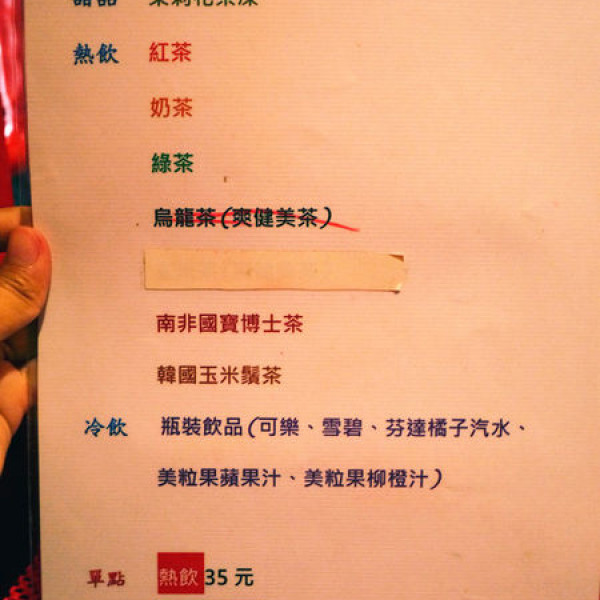 甜品 茉莉花茶凍
熱飲 紅茶
奶茶
綠茶
烏龍茶(爽健美茶)
南非國寶博士茶
韓國玉米鬚茶
冷飲 瓶裝飲品(可樂、雪碧、芬達橘子汽水、
美粒果蘋果汁、美粒果柳橙汁)
單點 熱飲 35 元